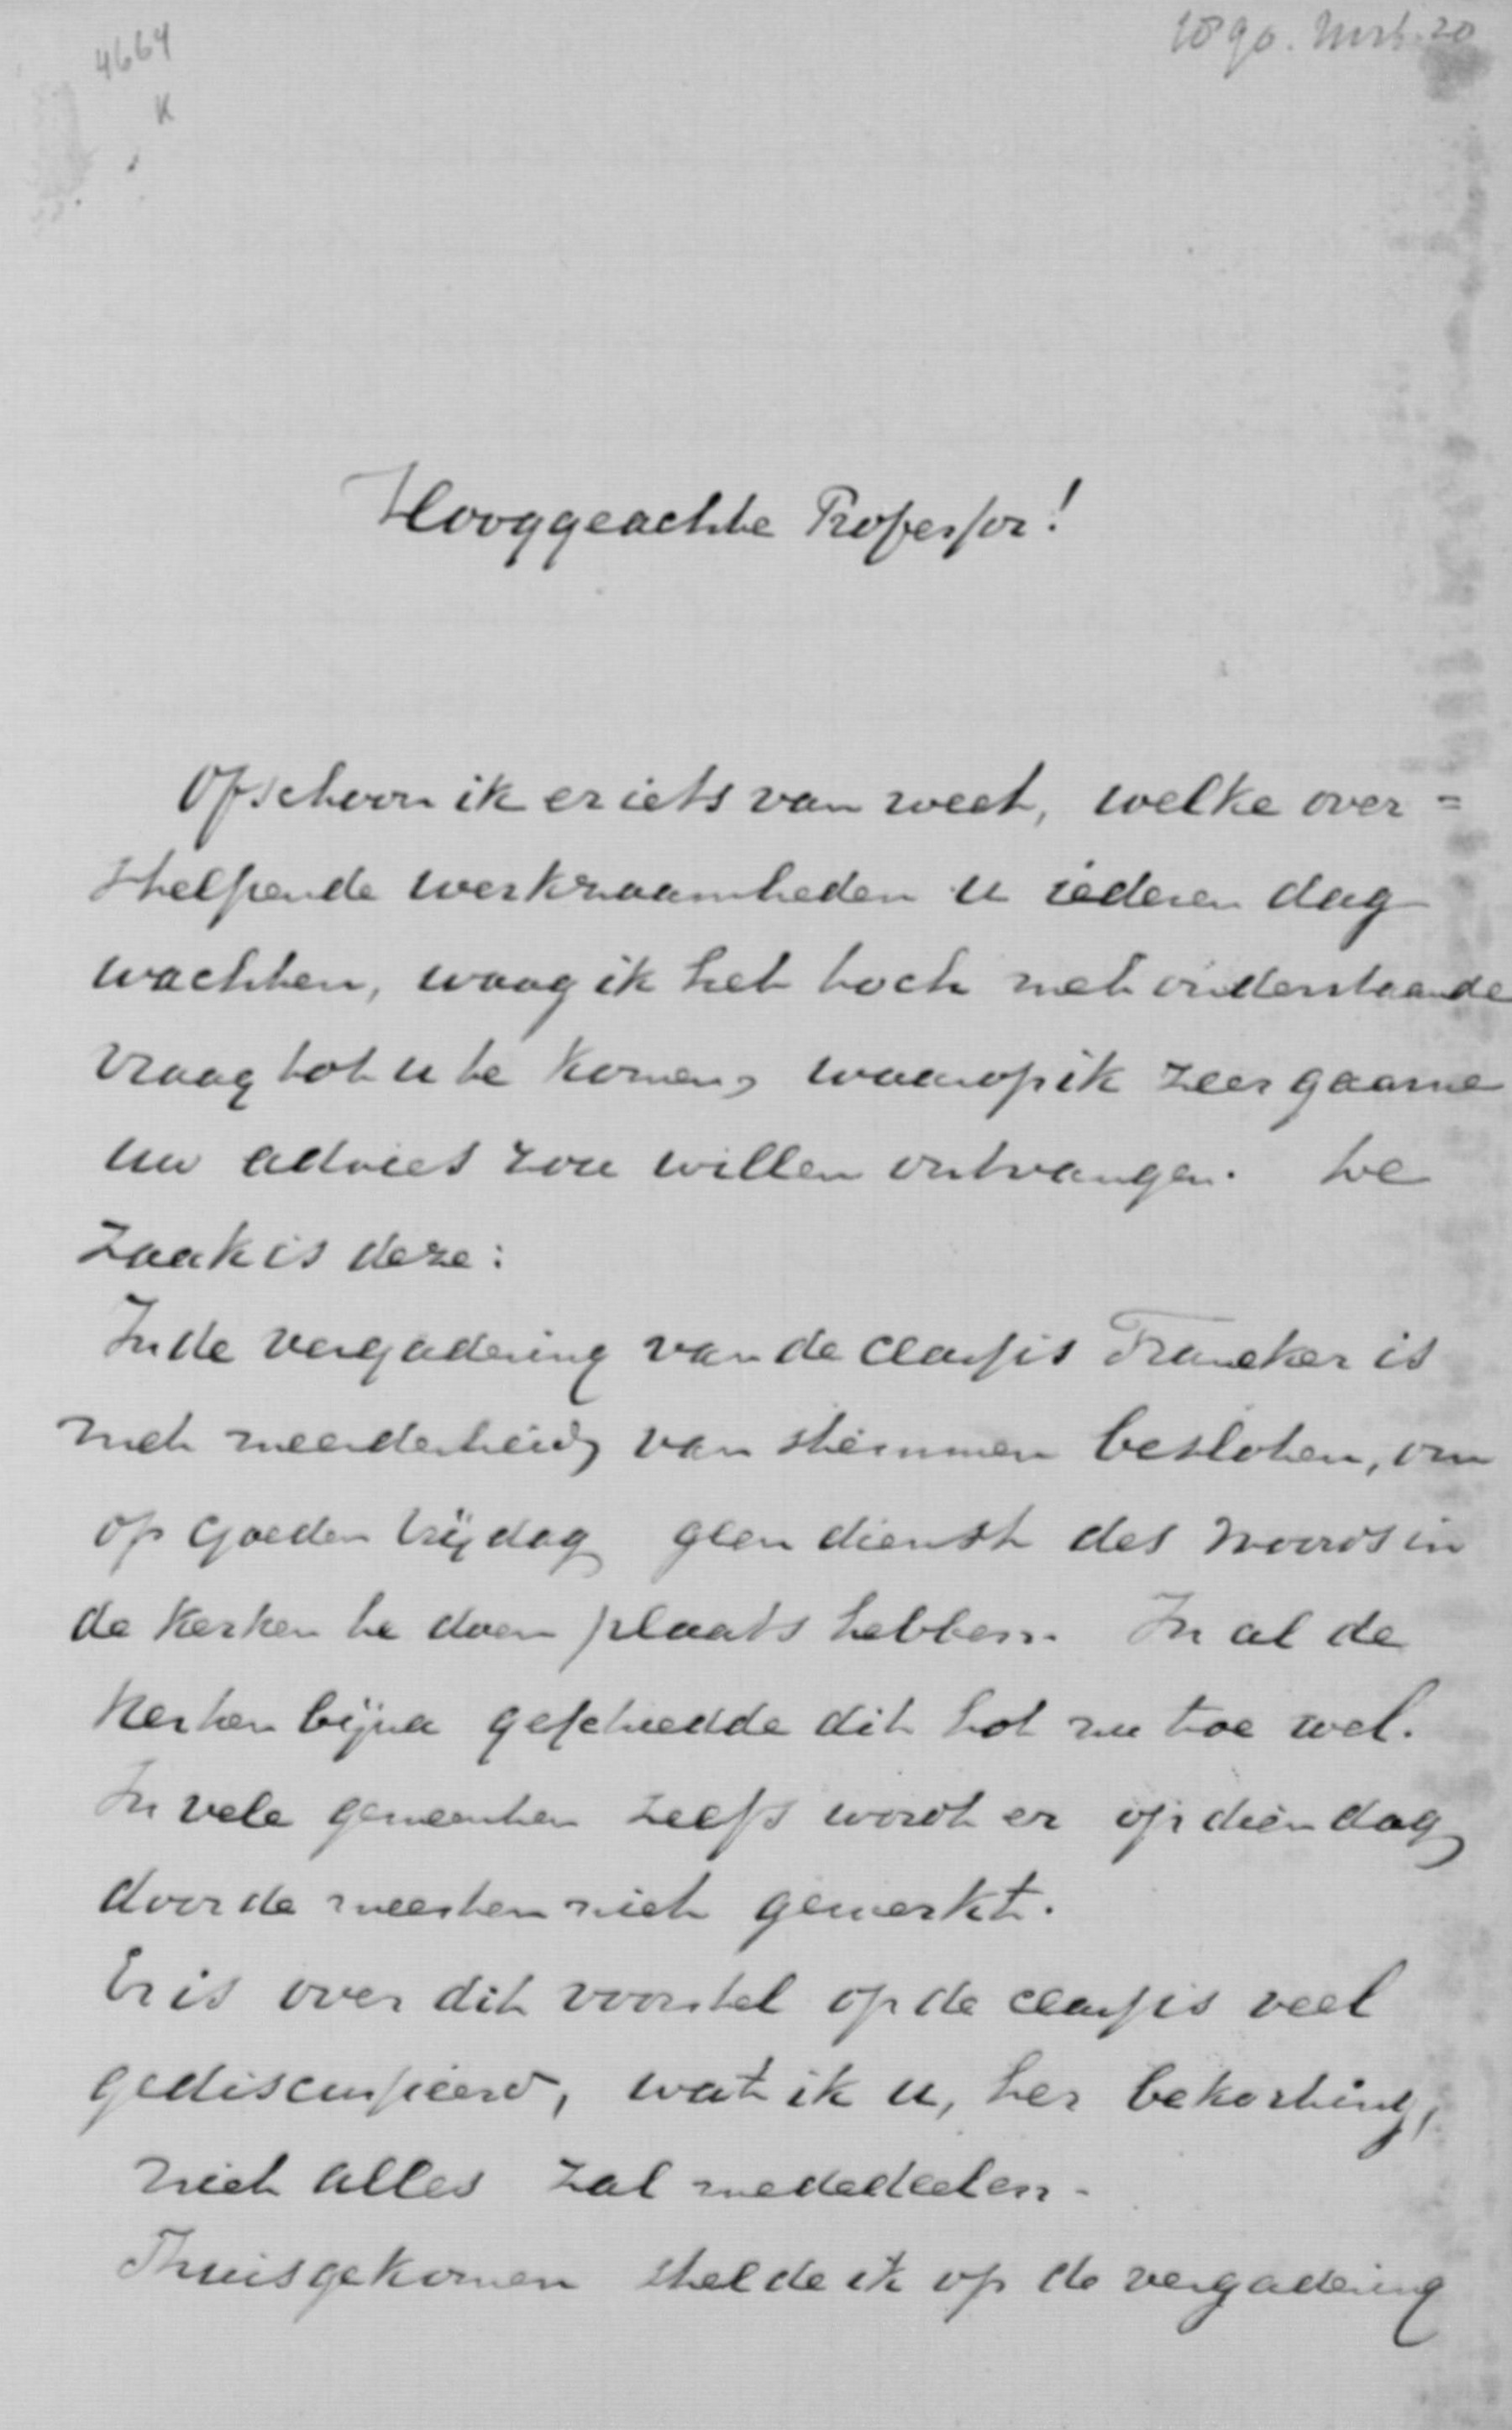 4664
1890. Mrt. 20
K
Hooggeachte Professor!
Ofschoon ik er iets van weet, welke over=
stelpende werkzaamheden u iederen dag
wachten, waag ik het toch met onderstaande
vraag tot u te komen, waarop ik zeer gaarne
uw advies zou willen ontvangen. De
zaak is deze:
In de vergadering van de classis Franeker is
met meerderheid van stemmen besloten, om
op Goeden Vrijdag geen dienst des Woords in
de kerken te doen plaats hebben. In al de
kerken bijna geschiedde dit tot nu toe wel.
In vele gemeenten zelfs wordt er op dien dag
door de meesten niet gewerkt.
Er is over dit voorstel op de classis veel
gediscussieerd, wat ik u, ter bekorting,
niet alles zal mededeelen.
Thuisgekomen stelde ik op de vergadering